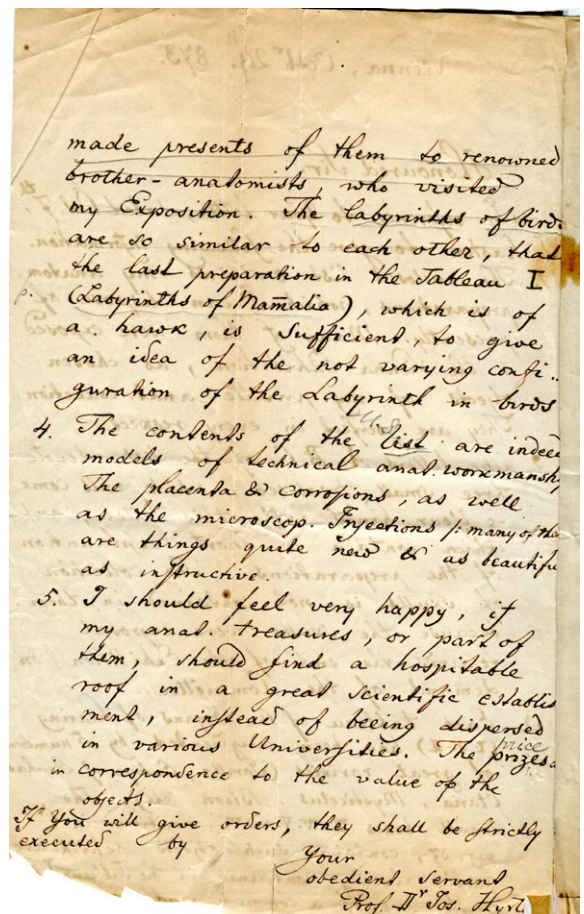 made presents of them to renowned
brother-anatomists, who visited
my Exposition. The labyrinths of birds
are so similar to each other, that
the last preparation in the Tableau I
(Labyrinths of Mam̄alia), which is of
a hawk, is sufficient, to give
an idea of the not varying confi..
guration of the Labyrinth in birds
4. The contents of the list are indeed
models of technical anat. workmansh
The placenta & corrosions, as well
as the microscop. Injections /: many of the
are things quite new & as beautifu
as instructive.
5. I should feel very happy, if
my anat. treasures, or part of
them, should find a hospitable
roof in a great scientific establis
ment, instead of beeing dispersed
in various Universities. The prizes
price
in correspondence to the value of the
objects.
If You will give orders, they shall be strictly
executed by
Your
obedient servant
Prof. Dr Jos. Hyrtl